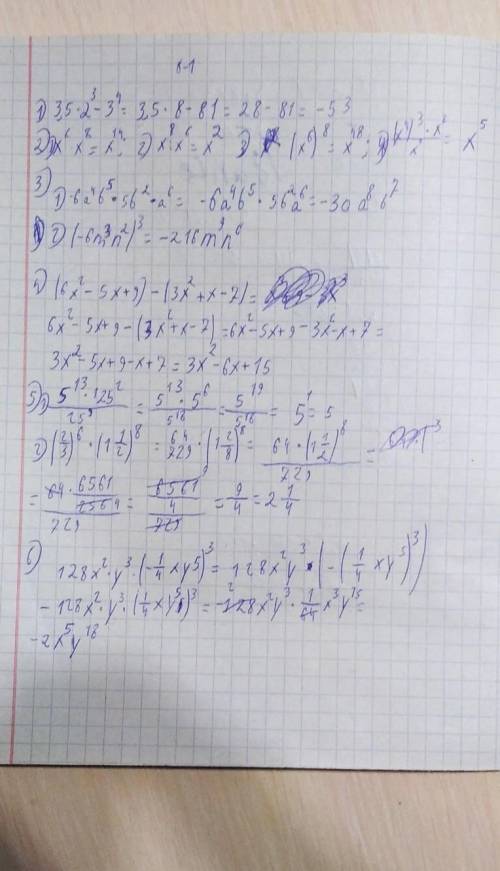 в-1
1) 3,5 · 2³ - 3⁴ = 3,5 · 8 - 81 = 28 - 81 = -53
2) 1) x⁶ x⁸ = x¹⁴; 2) x⁸ : x⁶ = x² 3) (x⁶)⁸ = x⁴⁸; 4) = x⁵
3)
1) -6a⁴b⁵ · 5b² · a⁶ = -6a⁴b⁵ · 5b²a⁶ = -30a⁸b⁷
2) (-6m³n²)³ = -216m⁹n⁶
4) (6x² - 5x + 9) - (3x² + x - 7) =
6x² - 5x + 9 - (3x² + x - 7) = 6x² - 5x + 9 - 3x² - x + 7 =
3x² - 5x + 9 - x + 7 = 3x² - 6x + 15
5) 1) 5¹³ · 125² / 25⁹ = 5¹³ · 5⁶ / 5¹⁸ = 5¹⁹ / 5¹⁸ = 5¹ = 5
2) (2/3)⁶ · (1 1/2)⁸ = 64/729 · = 64 · (1 1/2)⁸ / 729 =
= = 9/4 = 2 1/4
6)
128x² · y³ · (-1/4 xy⁵)³ = 128x² y³ · (-(1/4 xy⁵)³)
- 128x² · y³ · (1/4 xy⁵)³ = -128x²y³ · 1/64 x³y¹⁵ =
-2x⁵y¹⁸